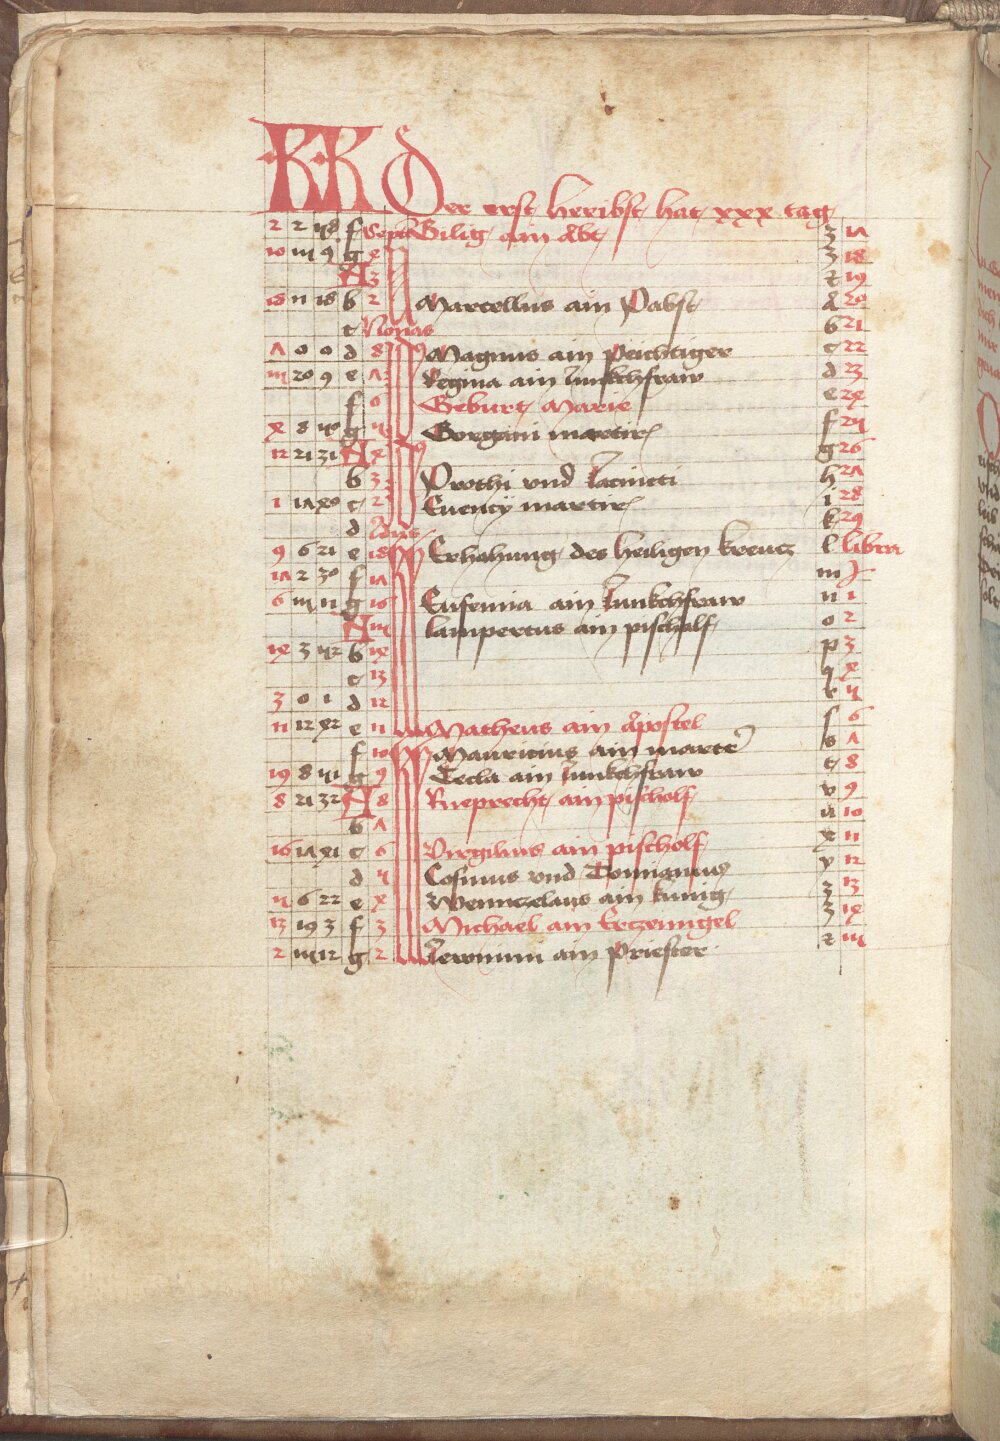 KK Der erst heribst hat xxx tag
2 2 48 f Septe Gilig ain Abt z 17
10 m 9 g 4 z 18
A 3 t 19
18 11 18 b 2 Marcellus ain Pabst a 20
c Nonas b 21
7 0 0 d 8 Magnus ain Peichtiger c 22
m 20 9 e 7 Regina ain Junkchfraw d 23
f 6 Geburt Marie e 24
4 8 40 g 5 Gorgani martir f 25
12 21 31 A 4 g 26
b 3 Prothi vnd Jacincti h 27
1 17 40 c 2 Euency martir i 28
d Idus k 29
9 6 21 e 18 Erhahung des heiligen kreucz l libra
17 2 30 f 17 m
6 m 11 g 16 Eufemia ain Junkchfraw n 1
A m Lampertus ain pischolf o 2
14 3 42 b 14 p 3
c 13 q 4
3 0 1 d 12 r 5
11 12 42 e 11 Matheus ain Apostel s 6
f 10 Mauricius ain marter s 7
19 8 41 g 9 Tecla ain Junkchfraw t 8
8 21 32 A 8 Rueprecht ain pischolf v 9
b 7 u 10
16 17 41 c 6 Virgilius ain pischolf x 11
d 5 Cosmus vnd Domianus y 12
5 6 22 e 4 Wennczelaus ain kunig z 13
13 19 3 f 3 Michael ain Erczenngel z 14
2 m 12 g 2 Jeronimi ain Priester t m